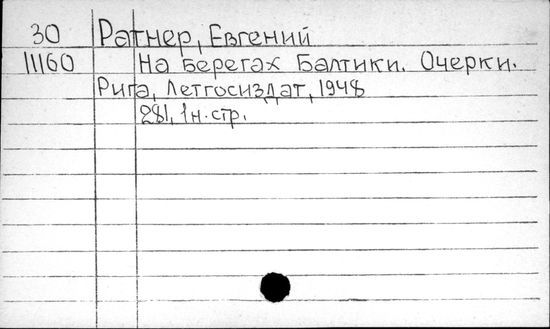 30 Ратнер, Евгений
11160 На берегах Балтики. Очерки.
Рига, Летгосиздат, 1948
281, 1 н. стр.